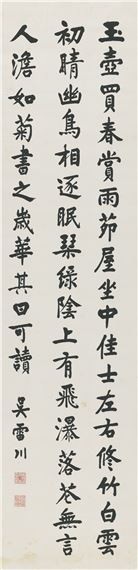 玉壺買春賞雨茆屋坐中佳士左右修竹白雲
初晴幽鳥相逐眠琹綠陰上有飛瀑落花無言
人澹如菊書之歲華其曰可讀 吳雷川